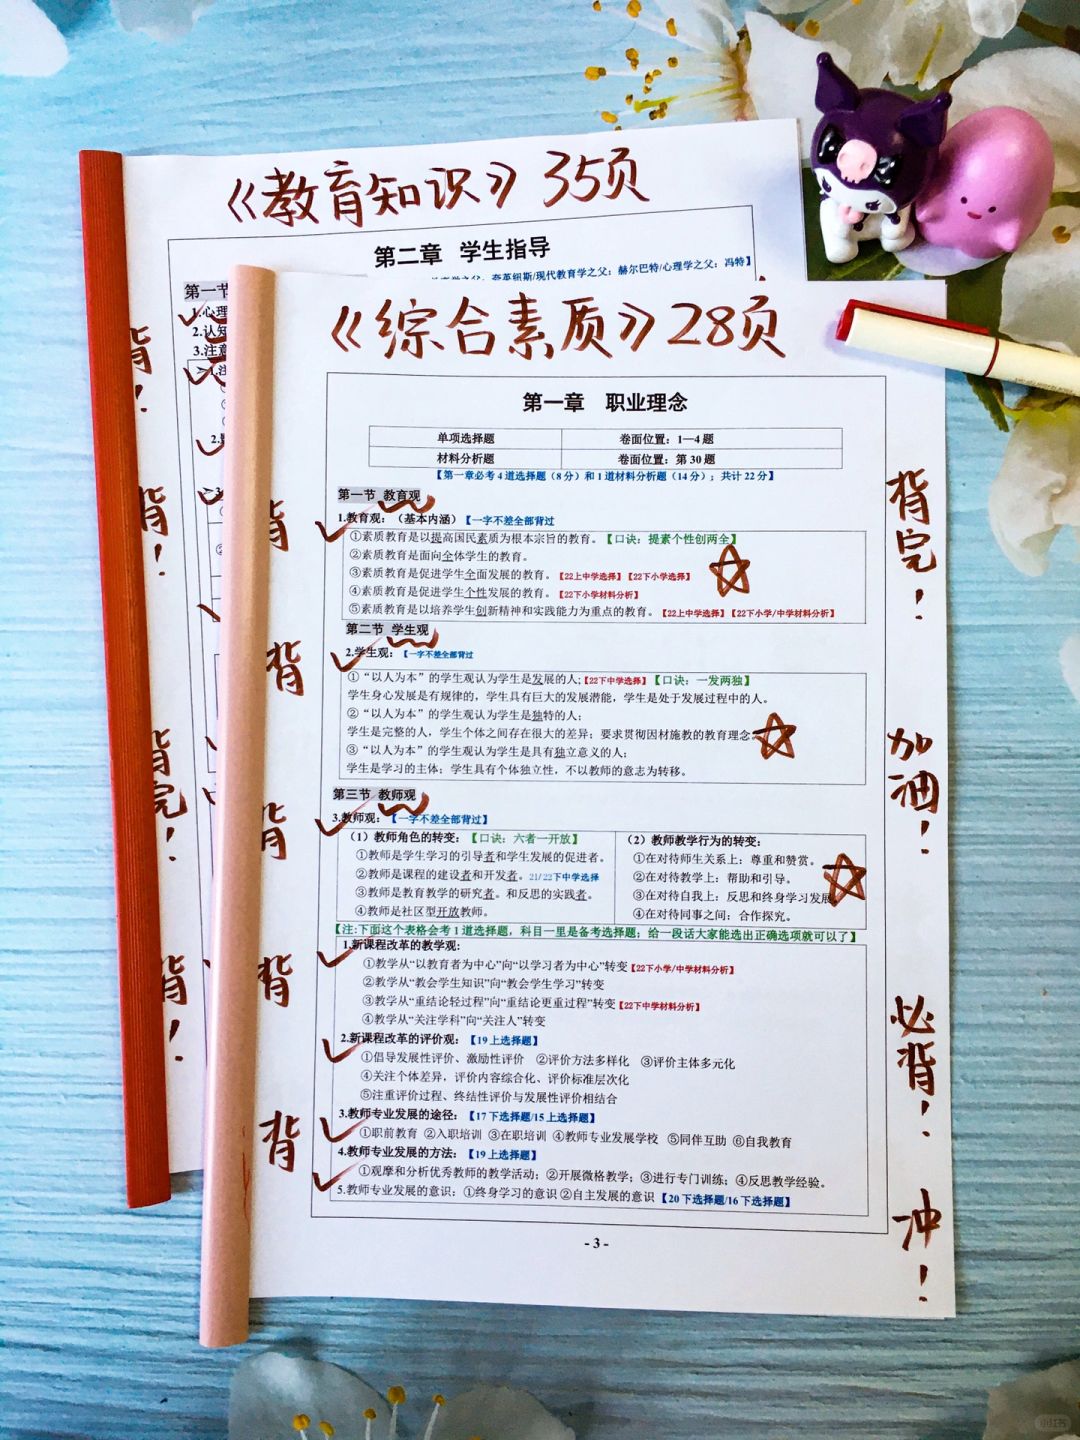 《教育知识》35页
第二章 学生指导
夸美纽斯/现代教育学之父：赫尔巴特/心理学之父：冯特】
第一节
1.心理
2.认知
3.注意
《综合素质》28页
第一章 职业理念
单项选择题 卷面位置：1—4题
材料分析题 卷面位置：第30题
【第一章必考4道选择题（8分）和1道材料分析题（14分）；共计22分】
第一节 教育观
1.教育观：（基本内涵）【一字不差全部背过
①素质教育是以提高国民素质为根本宗旨的教育。【口诀：提素个性创两全】
②素质教育是面向全体学生的教育。
③素质教育是促进学生全面发展的教育。【22上中学选择】【22下小学选择】
④素质教育是促进学生个性发展的教育。【22下小学材料分析】
⑤素质教育是以培养学生创新精神和实践能力为重点的教育。【22上中学选择】【22下小学/中学材料分析】
第二节 学生观
2.学生观：【一字不差全部背过
①“以人为本”的学生观认为学生是发展的人;【22下中学选择】【口诀：一发两独】
学生身心发展是有规律的，学生具有巨大的发展潜能，学生是处于发展过程中的人。
②“以人为本”的学生观认为学生是独特的人；
学生是完整的人，学生个体之间存在很大的差异；要求贯彻因材施教的教育理念
③“以人为本”的学生观认为学生是具有独立意义的人；
学生是学习的主体；学生具有个体独立性，不以教师的意志为转移。
第三节 教师观
3.教师观：【一字不差全部背过】
（1）教师角色的转变：【口诀：六者一开放】
①教师是学生学习的引导者和学生发展的促进者。
②教师是课程的建设者和开发者。21/22下中学选择
③教师是教育教学的研究者。和反思的实践者。
④教师是社区型开放教师。
（2）教师教学行为的转变：
①在对待师生关系上：尊重和赞赏。
②在对待教学上：帮助和引导。
③在对待自我上：反思和终身学习发展
④在对待同事之间：合作探究。
【注:下面这个表格会考1道选择题，科目一里是备考选择题；给一段话大家能选出正确选项就可以了】
1.新课程改革的教学观:
①教学从“以教育者为中心”向“以学习者为中心”转变【22下小学/中学材料分析】
②教学从“教会学生知识”向“教会学生学习”转变
③教学从“重结论轻过程”向“重结论更重过程”转变【22下中学材料分析】
④教学从“关注学科”向“关注人”转变
2.新课程改革的评价观：【19上选择题】
①倡导发展性评价、激励性评价 ②评价方法多样化 ③评价主体多元化
④关注个体差异，评价内容综合化、评价标准层次化
⑤注重评价过程、终结性评价与发展性评价相结合
3.教师专业发展的途径：【17下选择题/15上选择题】
①职前教育 ②入职培训 ③在职培训 ④教师专业发展学校 ⑤同伴互助 ⑥自我教育
4.教师专业发展的方法：【19上选择题】
①观摩和分析优秀教师的教学活动；②开展微格教学；③进行专门训练；④反思教学经验。
5.教师专业发展的意识：①终身学习的意识 ②自主发展的意识【20下选择题/16下选择题】
- 3 -
背！
背！
背完！
背！
背
背
背
背
背
背完！
加油！
必背！
冲！
小红书